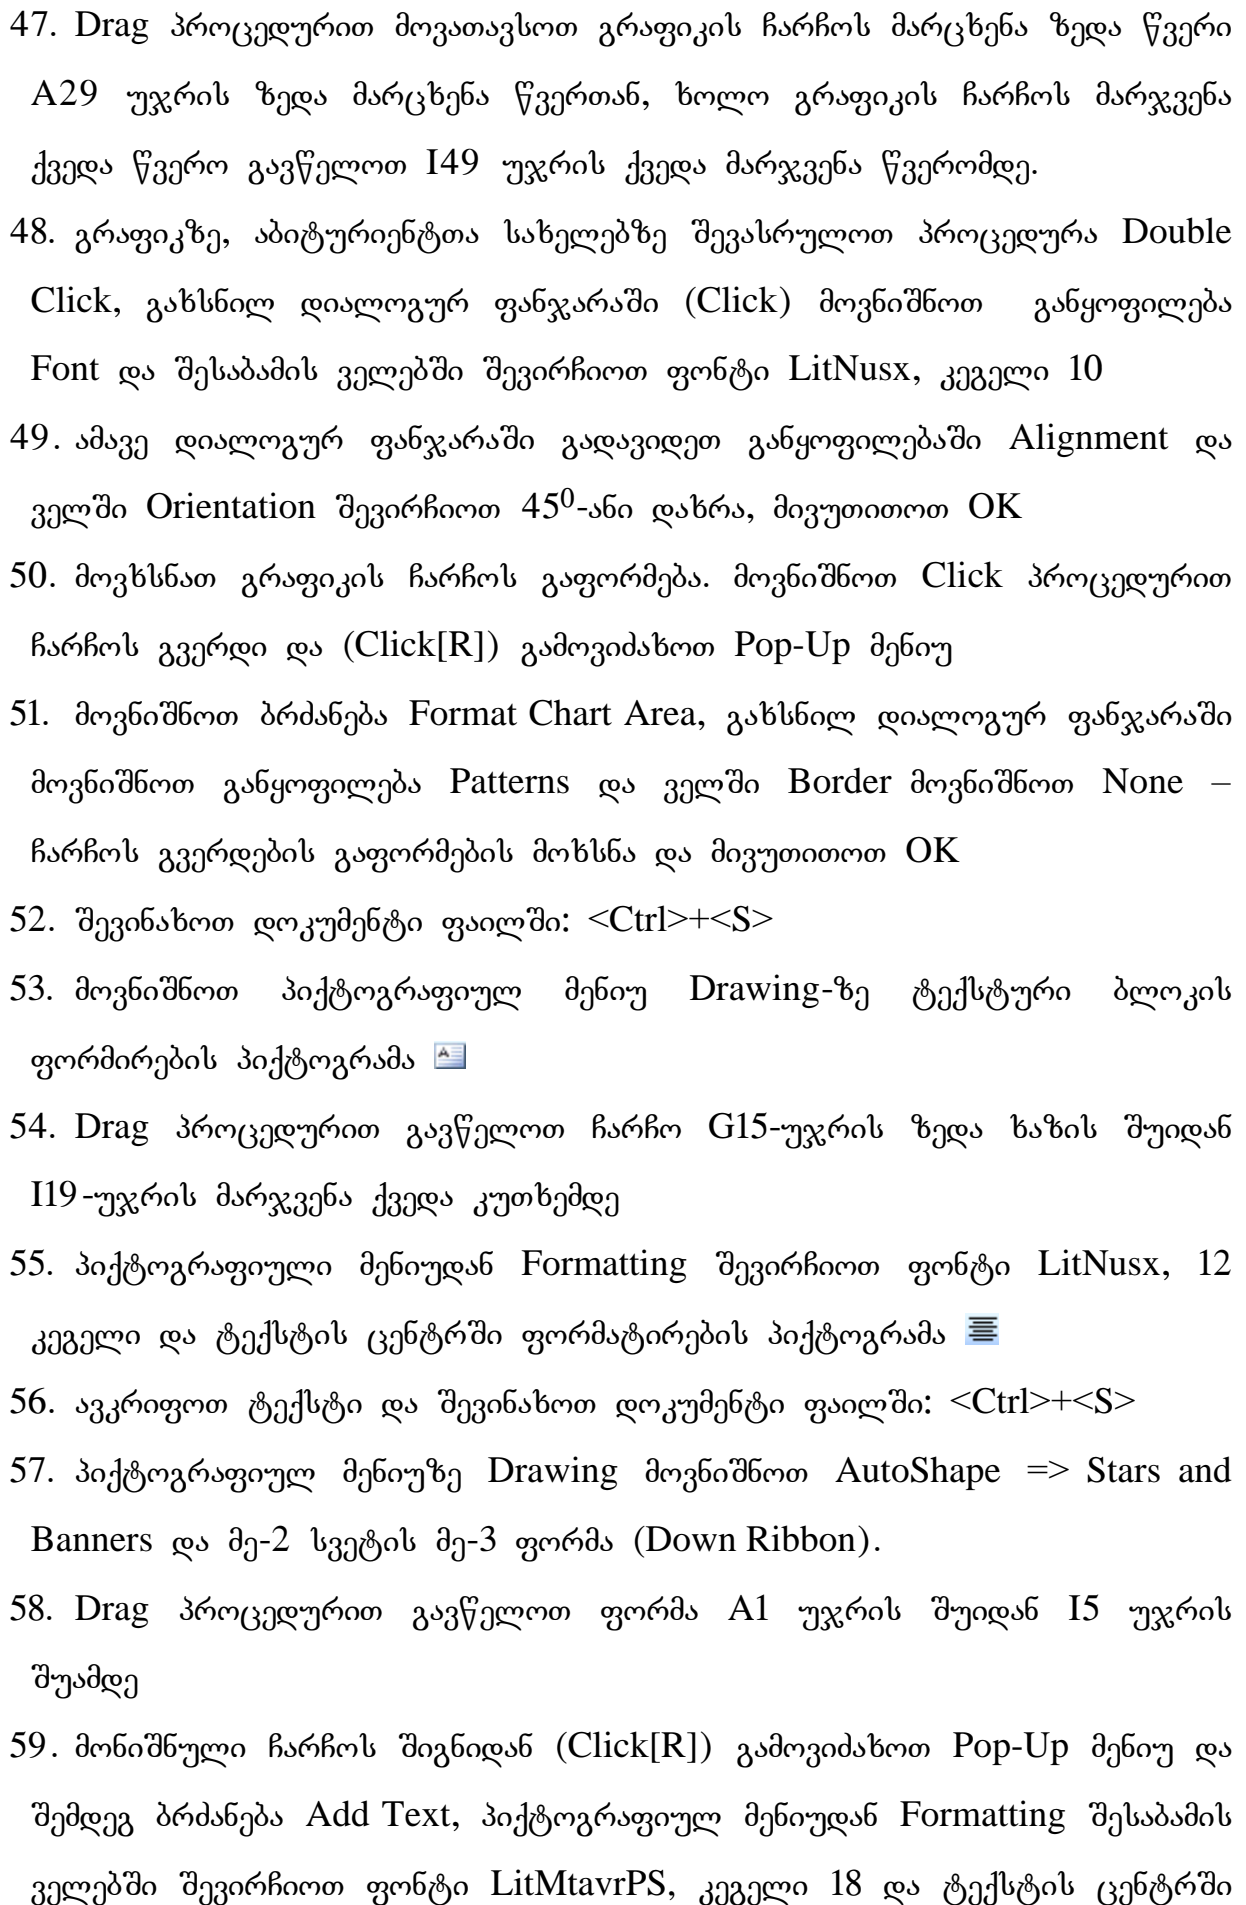 47. Drag პროცედურით მოვათავსოთ გრაფიკის ჩარჩოს მარცხენა ზედა წვერი
A29 უჯრის ზედა მარცხენა წვერთან, ხოლო გრაფიკის ჩარჩოს მარჯვენა
ქვედა წვერო გავწელოთ I49 უჯრის ქვედა მარჯვენა წვერომდე.
48. გრაფიკზე, აბიტურიენტთა სახელებზე შევასრულოთ პროცედურა Double
Click, გახსნილ დიალოგურ ფანჯარაში (Click) მოვნიშნოთ განყოფილება
Font და შესაბამის ველებში შევირჩიოთ ფონტი LitNusx, კეგელი 10
49. ამავე დიალოგურ ფანჯარაში გადავიდეთ განყოფილებაში Alignment და
ველში Orientation შევირჩიოთ 45⁰-ანი დახრა, მივუთითოთ OK
50. მოვხსნათ გრაფიკის ჩარჩოს გაფორმება. მოვნიშნოთ Click პროცედურით
ჩარჩოს გვერდი და (Click[R]) გამოვიძახოთ Pop-Up მენიუ
51. მოვნიშნოთ ბრძანება Format Chart Area, გახსნილ დიალოგურ ფანჯარაში
მოვნიშნოთ განყოფილება Patterns და ველში Border მოვნიშნოთ None –
ჩარჩოს გვერდების გაფორმების მოხსნა და მივუთითოთ OK
52. შევინახოთ დოკუმენტი ფაილში: <Ctrl>+<S>
53. მოვნიშნოთ პიქტოგრაფიულ მენიუ Drawing-ზე ტექსტური ბლოკის
ფორმირების პიქტოგრამა
54. Drag პროცედურით გავწელოთ ჩარჩო G15-უჯრის ზედა ხაზის შუიდან
I19-უჯრის მარჯვენა ქვედა კუთხემდე
55. პიქტოგრაფიული მენიუდან Formatting შევირჩიოთ ფონტი LitNusx, 12
კეგელი და ტექსტის ცენტრში ფორმატირების პიქტოგრამა
56. ავკრიფოთ ტექსტი და შევინახოთ დოკუმენტი ფაილში: <Ctrl>+<S>
57. პიქტოგრაფიულ მენიუზე Drawing მოვნიშნოთ AutoShape => Stars and
Banners და მე-2 სვეტის მე-3 ფორმა (Down Ribbon).
58. Drag პროცედურით გავწელოთ ფორმა A1 უჯრის შუიდან I5 უჯრის
შუამდე
59. მონიშნული ჩარჩოს შიგნიდან (Click[R]) გამოვიძახოთ Pop-Up მენიუ და
შემდეგ ბრძანება Add Text, პიქტოგრაფიულ მენიუდან Formatting შესაბამის
ველებში შევირჩიოთ ფონტი LitMtavrPS, კეგელი 18 და ტექსტის ცენტრში